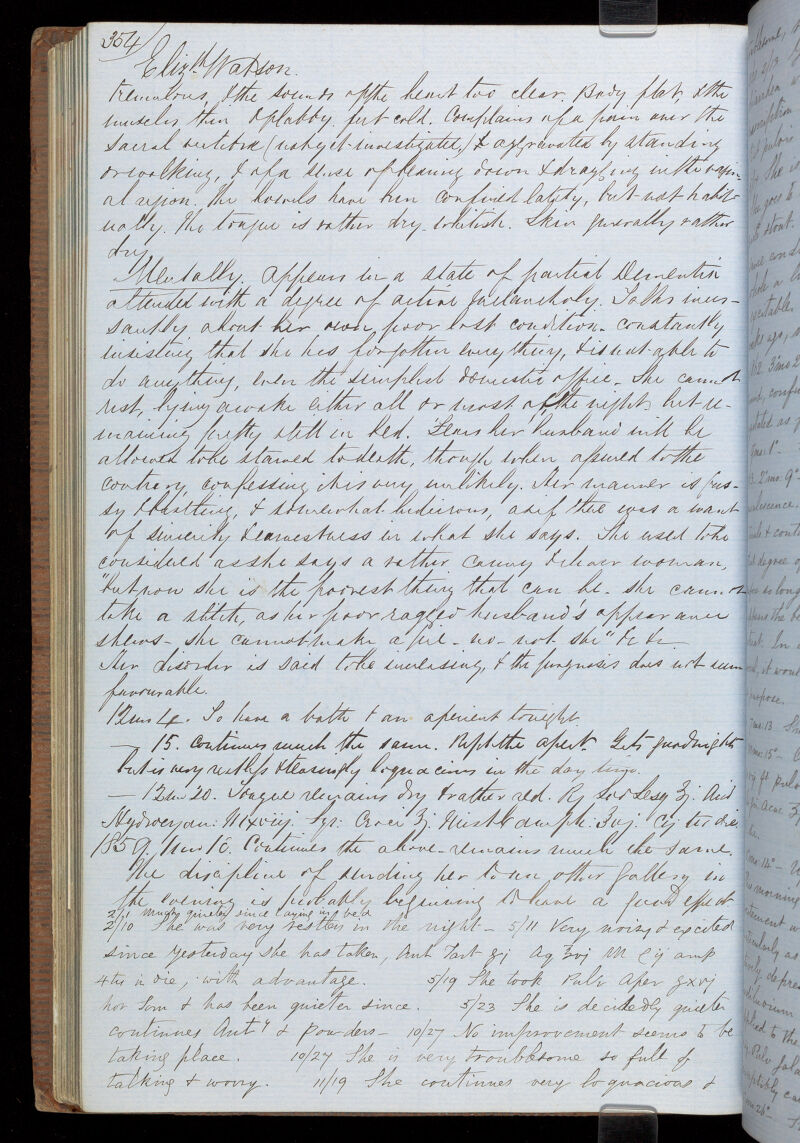 354
Elizth Watson.
tremulous, & the sounds of the heart too clear. Body flat, & the
muscles thin & flabby. feet cold. Complains of a pain over the
sacral (not yet investigated,) & aggravated by standing
or walking, & of a sense of bearing down & dragging in the vagin-
al region. The bowels have been confined lately, but not habit-
ually. The tongue is rather dry. whitish. Skin generally rather
dry.
Mentally. appears in a state of partial Dementia
attended with a degree of active Melancholy. Talks inces-
santly about her own, poor lost condition. constantly
insisting that she has forgotten everything, & is not able to
do anything, even the simplest domestic office. She cannot
rest, lying awake either all or most of the night, but re-
maining pretty still in bed. Fears her husband will be
allowed to be starved to death, though when assured to the
contrary, confessing it is very unlikely. Her manner is fus-
sy & bustling, & somewhat ludicrous, as if there was a want
of sincerity & earnestness in what she says. She used to be
considered as she says a rather canny & clever woman,
"but now she is the poorest thing that can be. she cannot
take a stitch, as her poor ragged husband's appearance
shews - she cannot make a fire - no - not she" &c &c
Her disorder is said to be increasing, & the prognosis does not seem
favourable.
12mo 4. To have a bath & an aperient tonight.
— 15. continues much the same. Rept the apert. Gets good nights
but is very restless & teasingly loquacious in the day time.
— 12mo 20. Tongue remains dry & rather red. Rx Sod Sesq ʒj. Acid
Hydrocyan: Mxviij. Syr: Croci ʒj. Mist Camph: ʒvj. Cij ter die
1859 1mo 10. Continues the above - remains much the same.
The discipline of sending her to an other Gallery in
the evening is probably beginning to have a good effect
2/11 Much quieter since laying in bed
2/10 She was very restless in the night - 5/11 Very noisy & excited
since yesterday she has taken, Ant Tart gj Aq ʒvj M Cij amp
4ter in die, with advantage. 5/19 She took Pulv Aper gxvj
hor Som & has been quieter since. 5/23 She is decidedly quieter
continues Anty & powders - 10/27 No improvement seems to be
taking place. 10/27 She is very troublesome so full of
talking & worry. 11/19 She continues very loquacious &